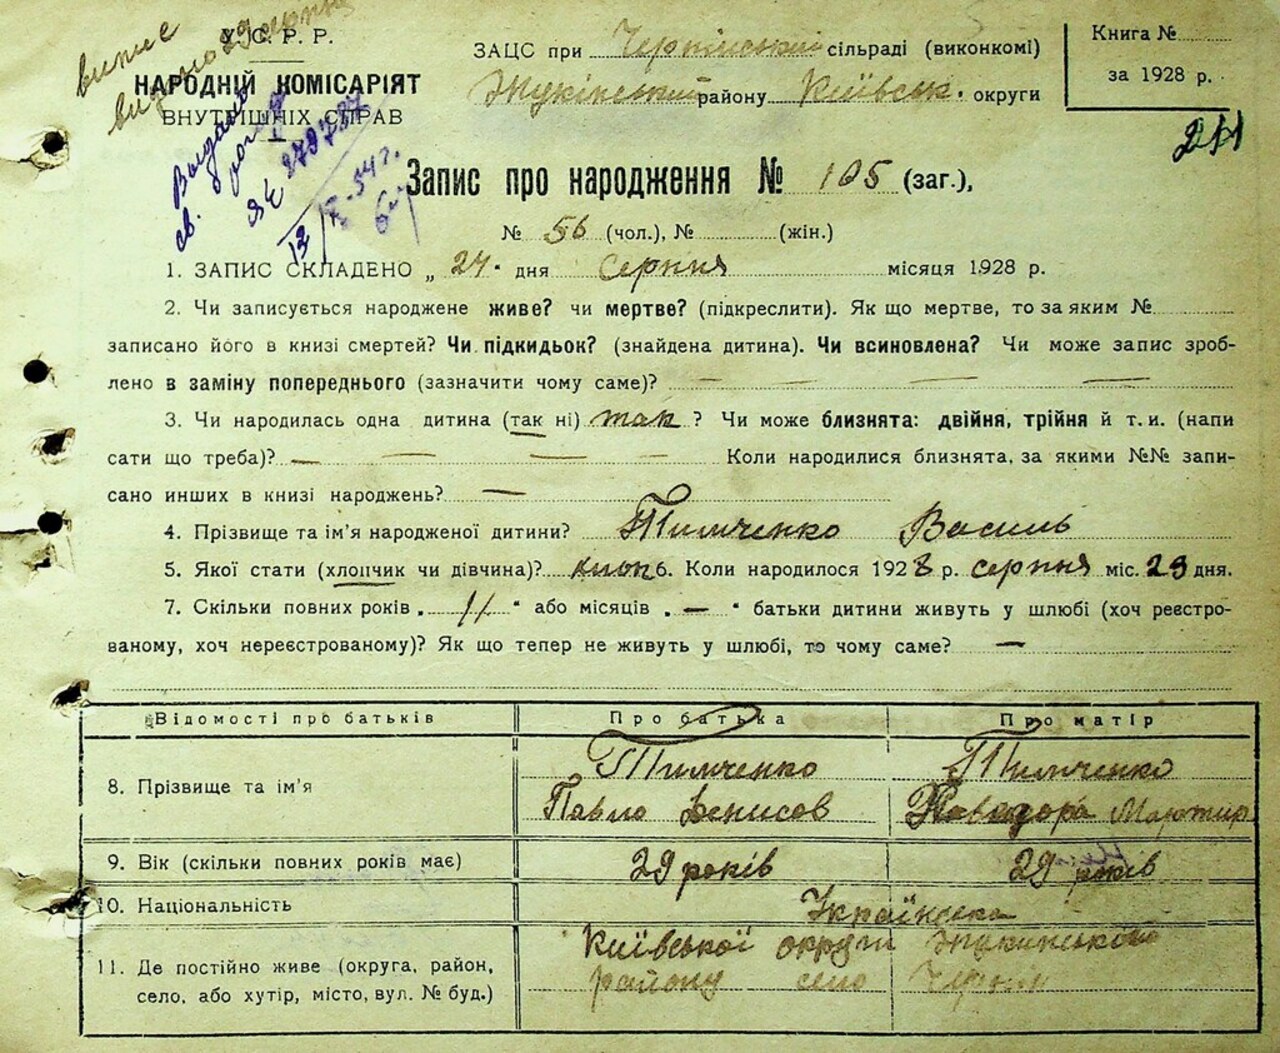 випис
видано 29 серпня
У. С. Р. Р.
НАРОДНІЙ КОМІСАРІЯТ
ВНУТРІШНІХ СПРАВ
св.
ЯЕ
ЗАЦС при сільраді (виконкомі)
району Київськ. округи
Книга №
за 1928 р.
211
Запис про народження № 105 (заг.),
№ 56 (чол.), № (жін.)
1. ЗАПИС СКЛАДЕНО „ дня серпня місяця 1928 р.
2. Чи записується народжене живе? чи мертве? (підкреслити). Як що мертве, то за яким №
записано його в книзі смертей? Чи підкидьок? (знайдена дитина). Чи всиновлена? Чи може запис зроб-
лено в заміну попереднього (зазначити чому саме)? — — — —
3. Чи народилась одна дитина (так ні) так ? Чи може близнята: двійня, трійня й т. и. (напи
сати що треба)? — — — — Коли народилися близнята, за якими №№ запи-
сано инших в книзі народжень? —
4. Прізвище та ім'я народженої дитини? Тимченко Василь
5. Якої стати (хлопчик чи дівчина)? хлоп 6. Коли народилося 1928 р. серпня міс. 23 дня.
7. Скільки повних років „ 11 “ або місяців „ — “ батьки дитини живуть у шлюбі (хоч реєстро-
ваному, хоч нереєстрованому)? Як що тепер не живуть у шлюбі, то чому саме? —
Відомості про батьків Про батька Про матір
8. Прізвище та ім'я Тимченко Павло Денисов Тимченко
9. Вік (скільки повних років має) 29 років 29 років
10. Національність Українська
11. Де постійно живе (округа, район,
село, або хутір, місто, вул. № буд.)
Київської округи
району село